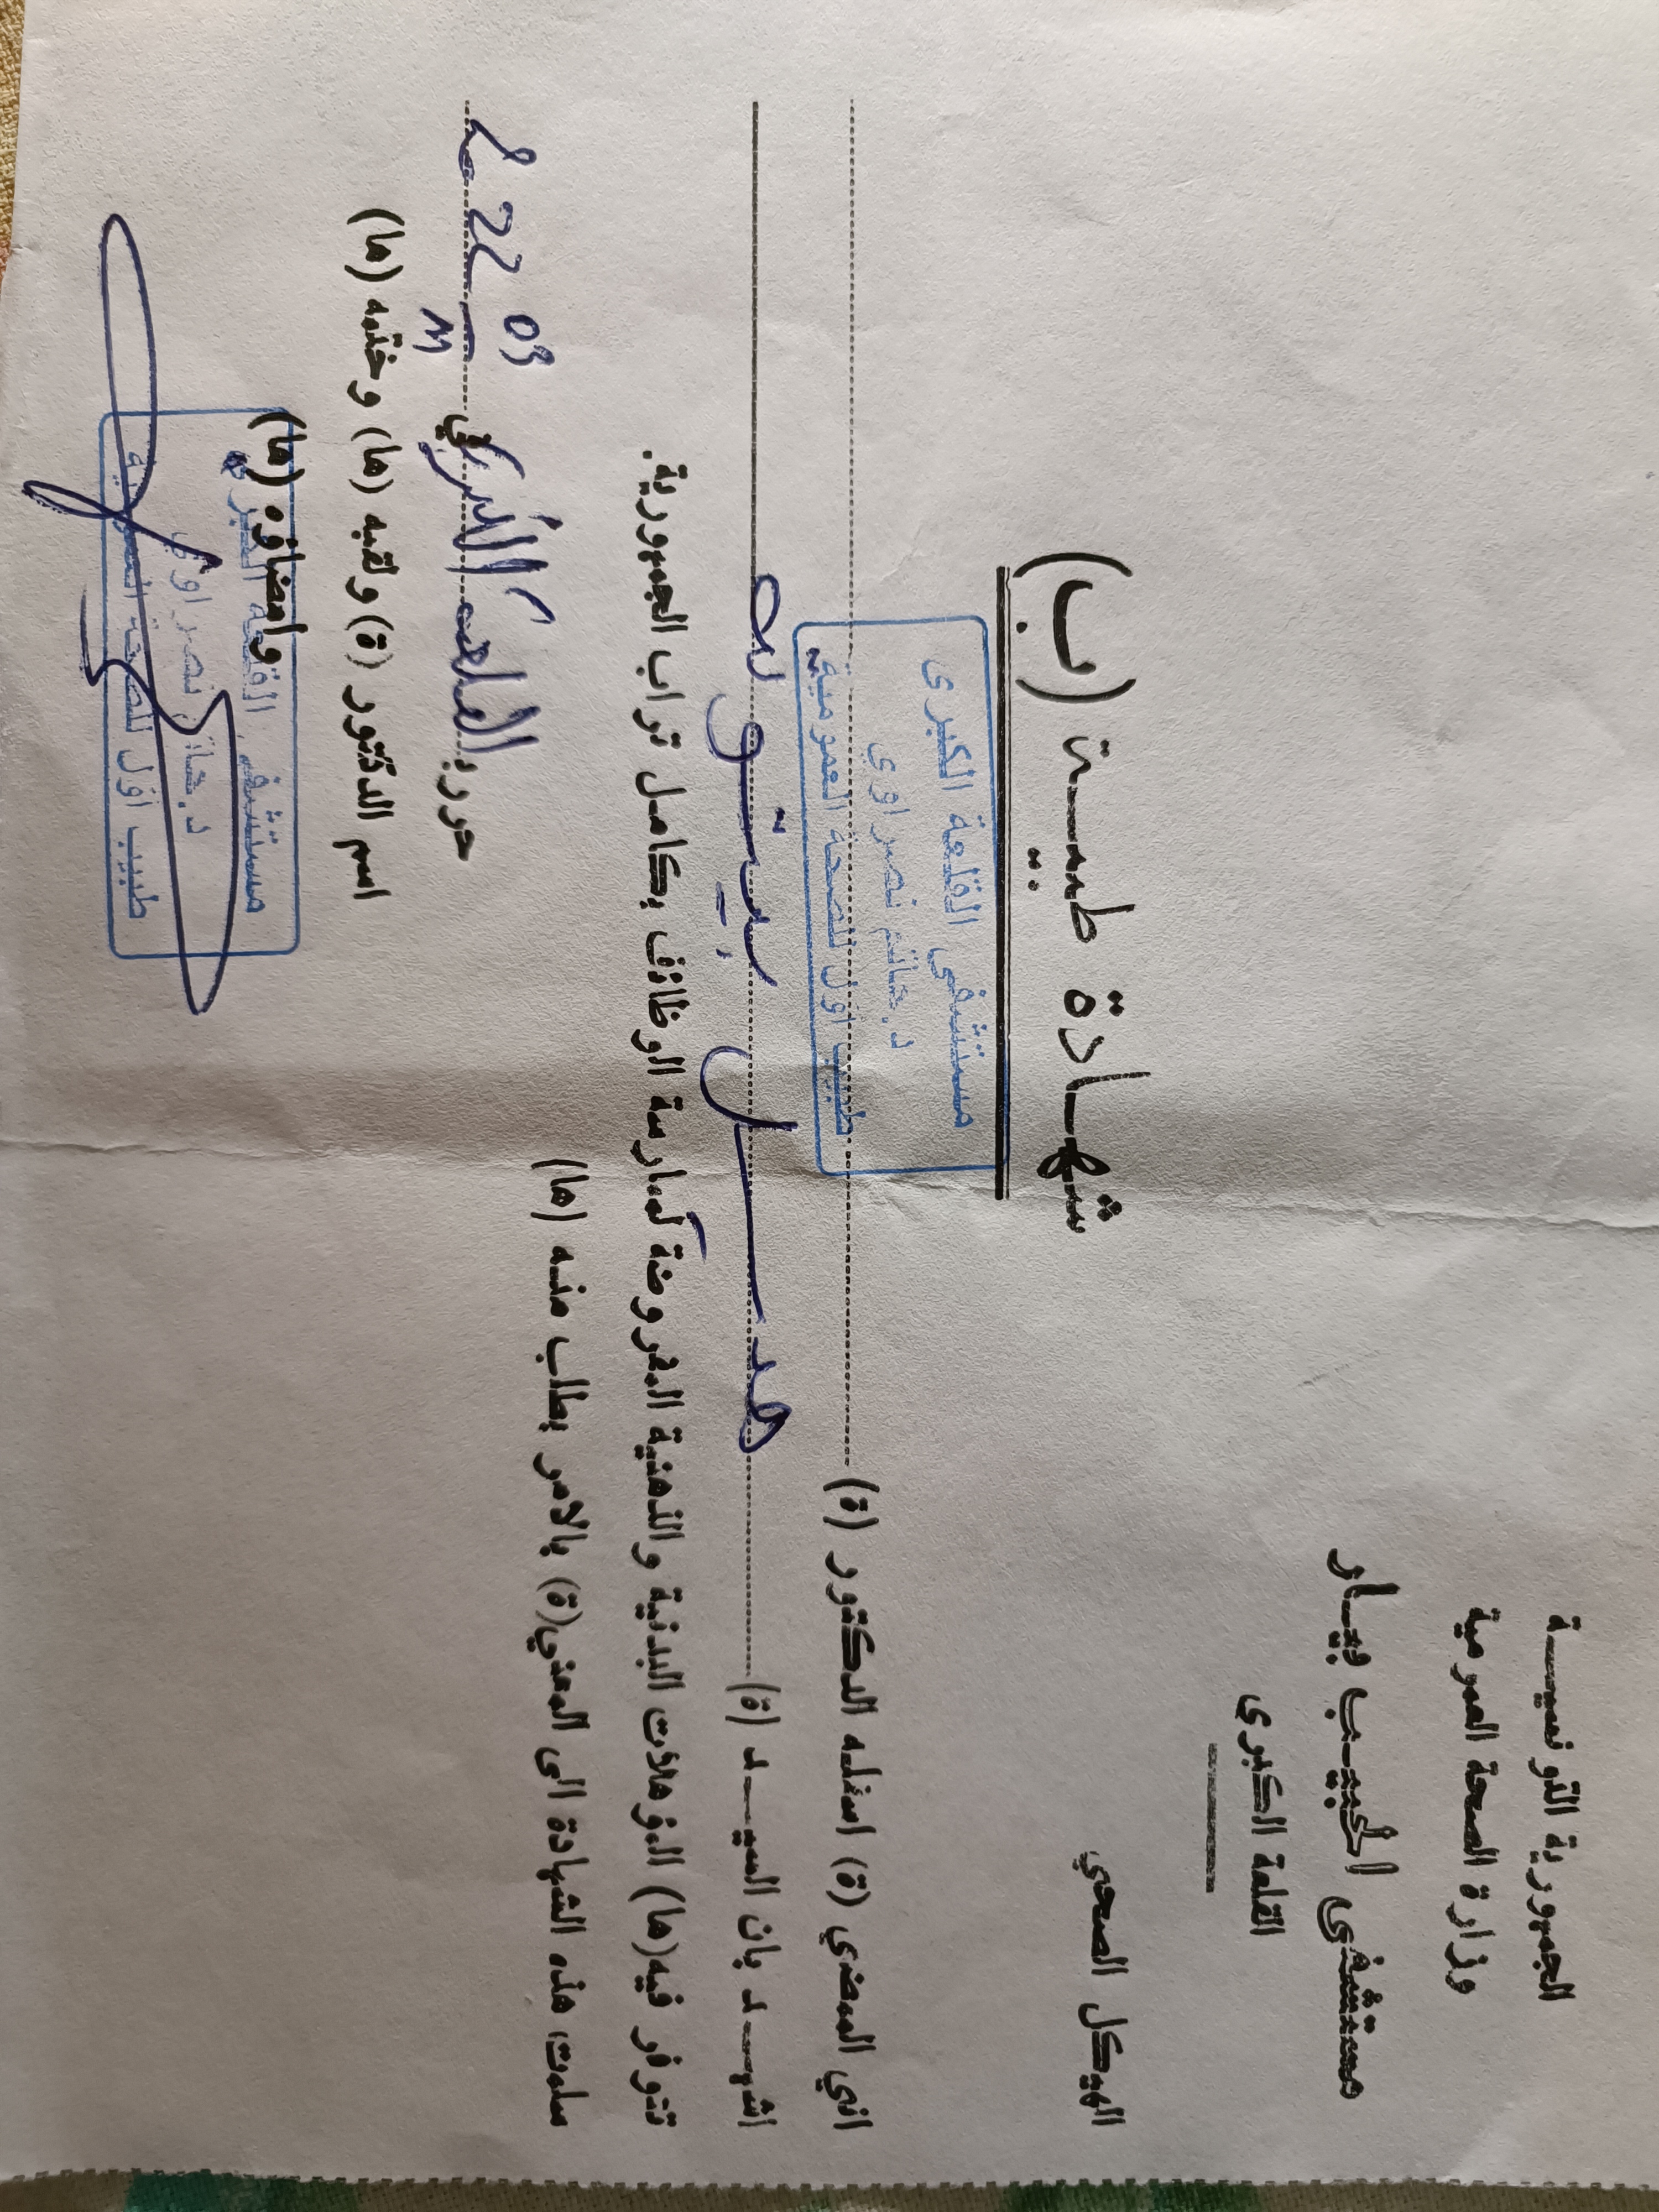 الجمهورية التونسية
وزارة الصحة العمومية
مستشفى الحبيب بيار
القلعة الكبرى
الهيكل الصحي
شهادة طبية (ب)
مستشفى القلعة الكبرى
د. حاتم نصراوي
طبيب أول للصحة العمومية
اني الممضي (ة) اسفله الدكتور (ة)
اشهد بان السيد (ة)
تتوفر فيه(ها) المؤهلات البدنية والذهنية المفروضة لممارسة الوظائف بكامل تراب الجمهورية.
سلمت هذه الشهادة الى المعني(ة) بالامر بطلب منه (ها)
حرر بـ القلعة الكبرى في 09
اسم الدكتور (ة) ولقبه (ها) وختمه (ها)
وامضاؤه (ها)
مستشفى القلعة الكبرى
د. حاتم نصراوي
طبيب أول للصحة العمومية